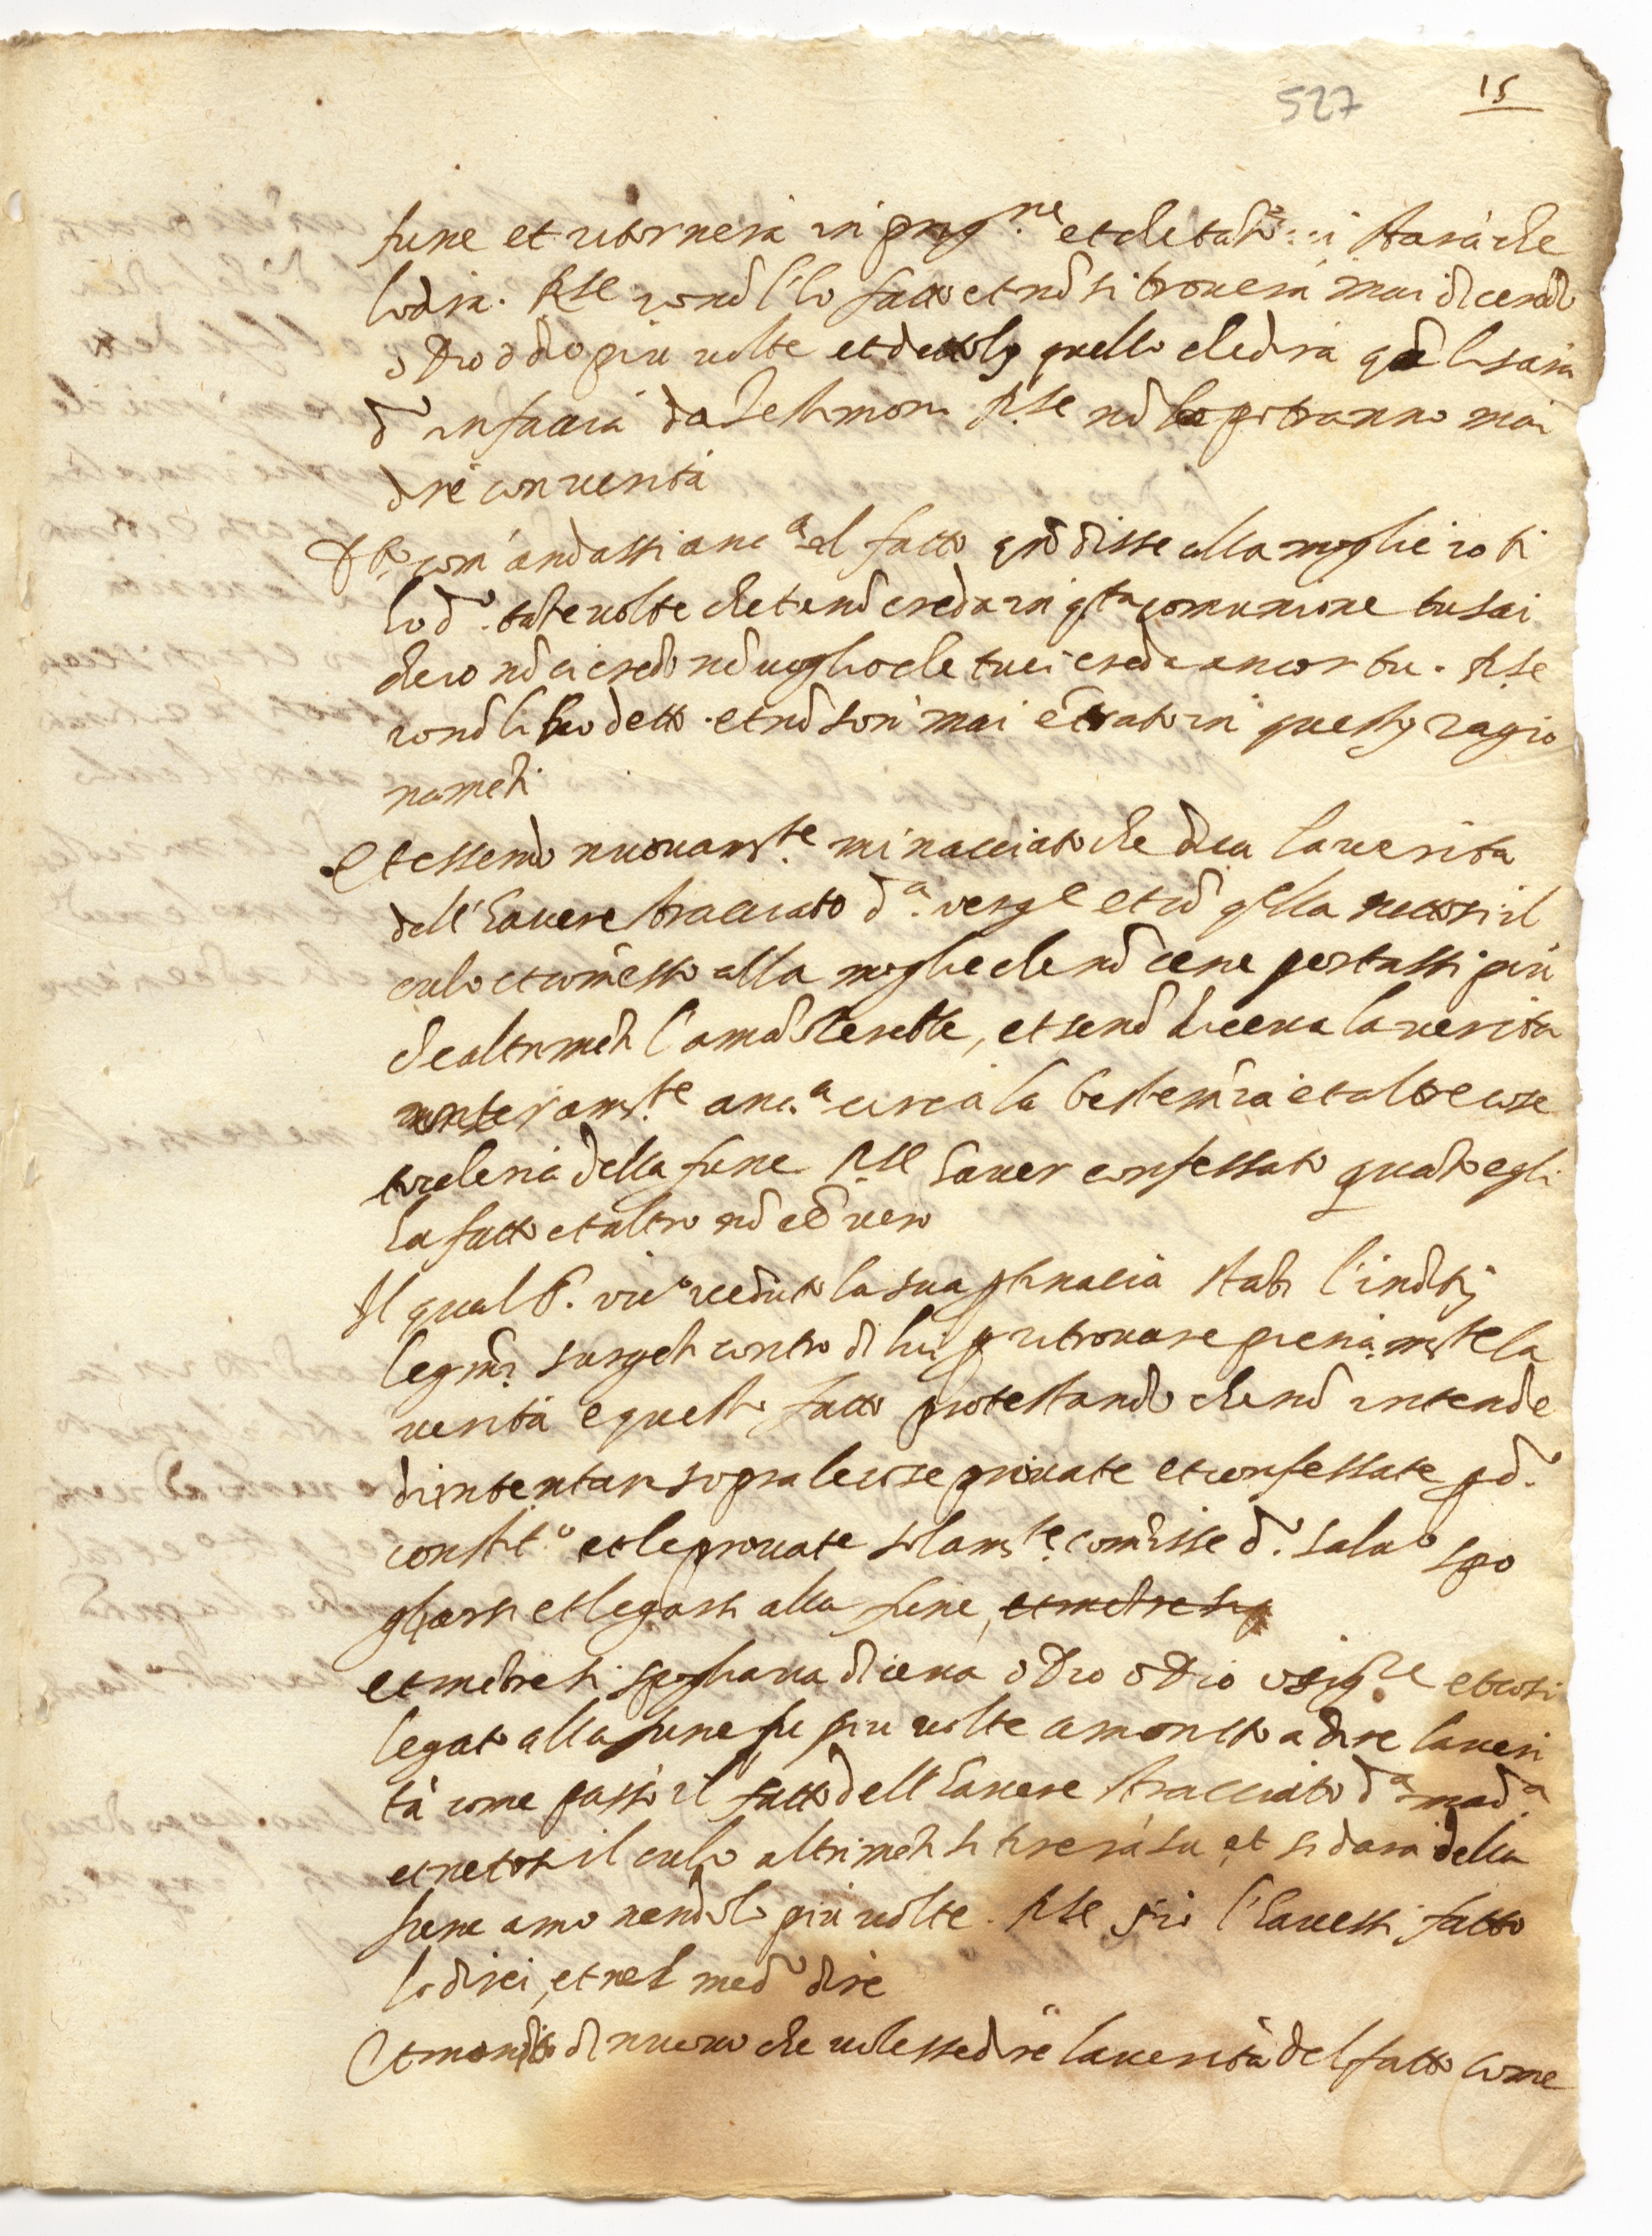 527
15
fune et ritornerà in prig.ne et che tanto ci starà che
lo dira. R.se io nō l'ho fatto et nō si trovera mai dicendo
o Dio o dio piu volte et dettoli quello che dirà qdo li sarà
d.o in faccia da Testimoni R.se nō lo potranno mai
dire con verità
D.o com' andassi anc.a el fatto qñdo disse alla moglie io ti
ho d.o tante volte che tu nō creda in q.ta comunione tu sai
che io nō ci credo nō voglio che tu ci creda ancor tu. R.se
io nō li ho detto. et nō son mai ētrato in questi ragio
namēti
Et essendo nuovam.te minacciato che dica la verita
dell'havere stracciato d.a verg.e et cō q.ella nettosi il
culo et comesso alla moglie che nō cene portassi più
che altrimēti l'amazzerebbe, et se nō diceva la verita
interam.te anc.a circa la bestemia et altre cose
toccheria della fune R.se haver confessato quāto egli
ha fatto et altro nō c'è di vero
Il qual P. vic.o veduto la sua ptinacia stāti l'inditij
leg.mi surgēti contro di lui p ritrovare pienam.te la
verità e questo fatto protestando che nō intende
di intentar sopra le cose provate et confessate p d.o
constit.o et le provate solam.te comisse d.o Sala.o spo
gliarsi et legarsi alla fune, et mētre si
et mētre si spogliava diceva o Dio o Dio o sig.re et cosi
legato alla fune fu piu volte amonito a dire la veri
tà come passò il fatto dell'havere stracciato d.a mad.a
et netosi il culo altrimēti si tirerà su et si darà della
fune amonendolo più volte. R.se s'io l'havessi fatto
lo direi, et nel med.o dire
Et monito di nuovo che volesse dire la verità del fatto come